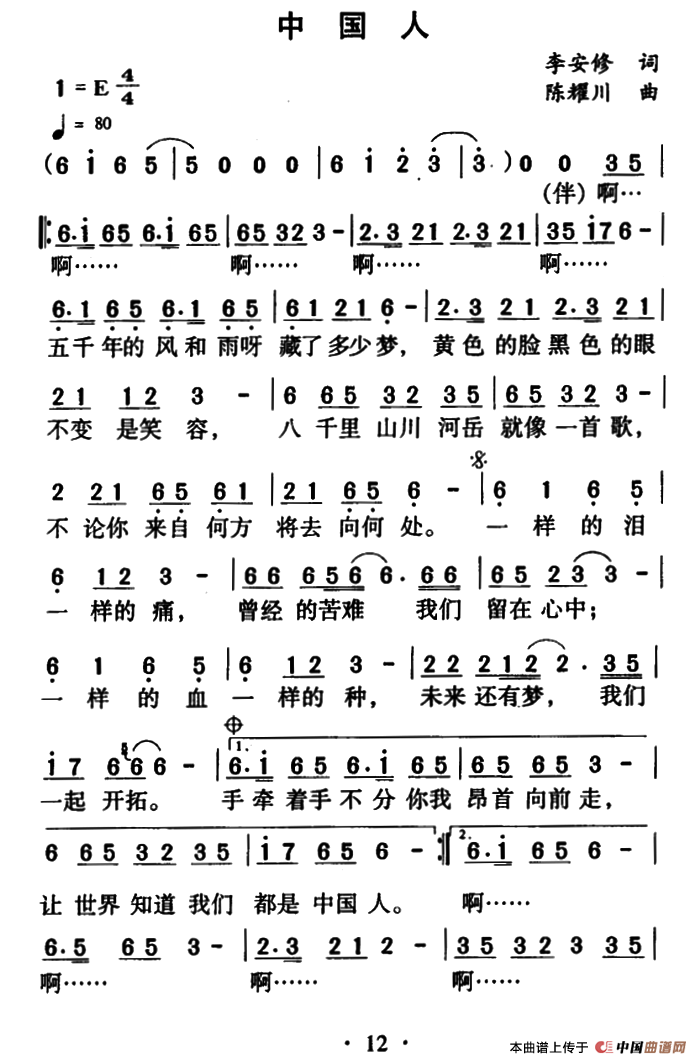 中国人
李安修 词
1=E 4/4
陈耀川 曲
♩= 80
(6 i 6 5 | 5 0 0 0 | 6 i 2 3 | 3·) 0 0 35 |
(伴)啊…
6·i 65 6·i 65 | 65 32 3 – | 2·3 21 2·3 21 | 35 i7 6 – |
啊…… 啊…… 啊…… 啊……
6·1 65 6·1 65 | 61 21 6 – | 2·3 21 2·3 21 |
五千年的风和雨呀 藏了多少梦, 黄色的脸黑色的眼
21 12 3 – | 6 65 32 35 | 65 32 3 – |
不变是笑容, 八千里山川河岳就像一首歌,
2 21 65 61 | 21 65 6 – | 6 1 6 5 |
不论你来自何方将去向何处。 一样的泪
6 12 3 – | 66 6566 6·66 | 65 23 3 – |
一样的痛, 曾经的苦难 我们留在心中;
6 1 6 5 | 6 12 3 – | 22 212 2·35 |
一样的血一样的种, 未来还有梦, 我们
i7 66 6 – | 1. 6·i 65 6·i 65 | 65 65 3 – |
一起开拓。 手牵着手不分你我昂首向前走,
6 65 32 35 | i7 65 6 – :| 2. 6·i 65 6 – |
让世界知道我们都是中国人。 啊……
6·5 65 3 – | 2·3 21 2 – | 35 32 3 35 |
啊…… 啊…… 啊……
· 12 ·
本曲谱上传于 中国曲谱网